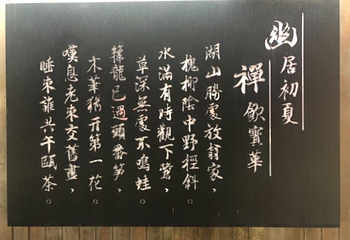 幽居初夏
禪飲寶華
湖山勝處放翁家，
槐柳陰中野徑斜。
水滿有時觀下鷺，
草深無處不鳴蛙。
籜龍已過頭番筍，
木筆猶開第一花。
嘆息老來交舊盡，
睡來誰共午甌茶。